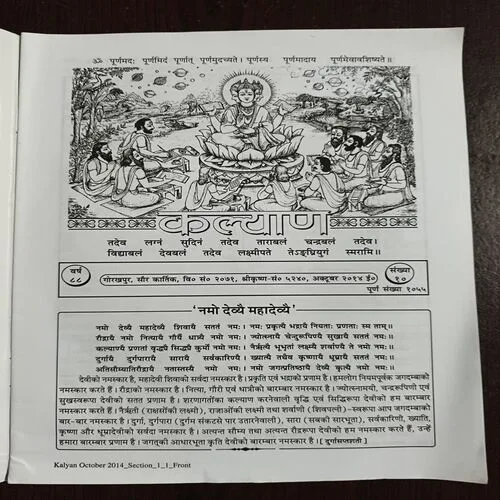 ॐ पूर्णमदः पूर्णमिदं पूर्णात् पूर्णमुदच्यते। पूर्णस्य पूर्णमादाय पूर्णमेवावशिष्यते॥
कल्याण
तदेव लग्नं सुदिनं तदेव ताराबलं चन्द्रबलं तदेव।
विद्याबलं देवबलं तदेव लक्ष्मीपते तेऽङ्घ्रियुगं स्मरामि॥
वर्ष
८८
गोरखपुर, सौर कार्तिक, वि० सं० २०७१, श्रीकृष्ण-सं० ५२४०, अक्टूबर २०१४ ई०
संख्या
१०
पूर्ण संख्या १०५५
'नमो देव्यै महादेव्यै'
नमो देव्यै महादेव्यै शिवायै सततं नमः। नमः प्रकृत्यै भद्रायै नियताः प्रणताः स्म ताम्॥
रौद्रायै नमो नित्यायै गौर्यै धात्र्यै नमो नमः। ज्योत्स्नायै चेन्दुरूपिण्यै सुखायै सततं नमः॥
कल्याण्यै प्रणतां वृद्ध्यै सिद्ध्यै कुर्मो नमो नमः। नैर्ऋत्यै भूभृतां लक्ष्म्यै शर्वाण्यै ते नमो नमः॥
दुर्गायै दुर्गपारायै सारायै सर्वकारिण्यै। ख्यात्यै तथैव कृष्णायै धूम्रायै सततं नमः॥
अतिसौम्यातिरौद्रायै नतास्तस्यै नमो नमः। नमो जगत्प्रतिष्ठायै देव्यै कृत्यै नमो नमः॥
देवीको नमस्कार है, महादेवी शिवाको सर्वदा नमस्कार है। प्रकृति एवं भद्राको प्रणाम है। हमलोग नियमपूर्वक जगदम्बाको
नमस्कार करते हैं। रौद्राको नमस्कार है। नित्या, गौरी एवं धात्रीको बारम्बार नमस्कार है। ज्योत्स्नामयी, चन्द्ररूपिणी एवं
सुखस्वरूपा देवीको सतत प्रणाम है। शरणागतोंका कल्याण करनेवाली वृद्धि एवं सिद्धिरूपा देवीको हम बारम्बार
नमस्कार करते हैं। नैर्ऋती (राक्षसोंकी लक्ष्मी), राजाओंकी लक्ष्मी तथा शर्वाणी (शिवपत्नी)-स्वरूपा आप जगदम्बाको
बार-बार नमस्कार है। दुर्गा, दुर्गपारा (दुर्गम संकटसे पार उतारनेवाली), सारा (सबकी सारभूता), सर्वकारिणी, ख्याति,
कृष्णा और धूम्रादेवीको सर्वदा नमस्कार है। अत्यन्त सौम्य तथा अत्यन्त रौद्ररूपा देवीको हम नमस्कार करते हैं, उन्हें
हमारा बारम्बार प्रणाम है। जगत्की आधारभूता कृति देवीको बारम्बार नमस्कार है। [ दुर्गासप्तशती ]
Kalyan October 2014_Section_1_1_Front